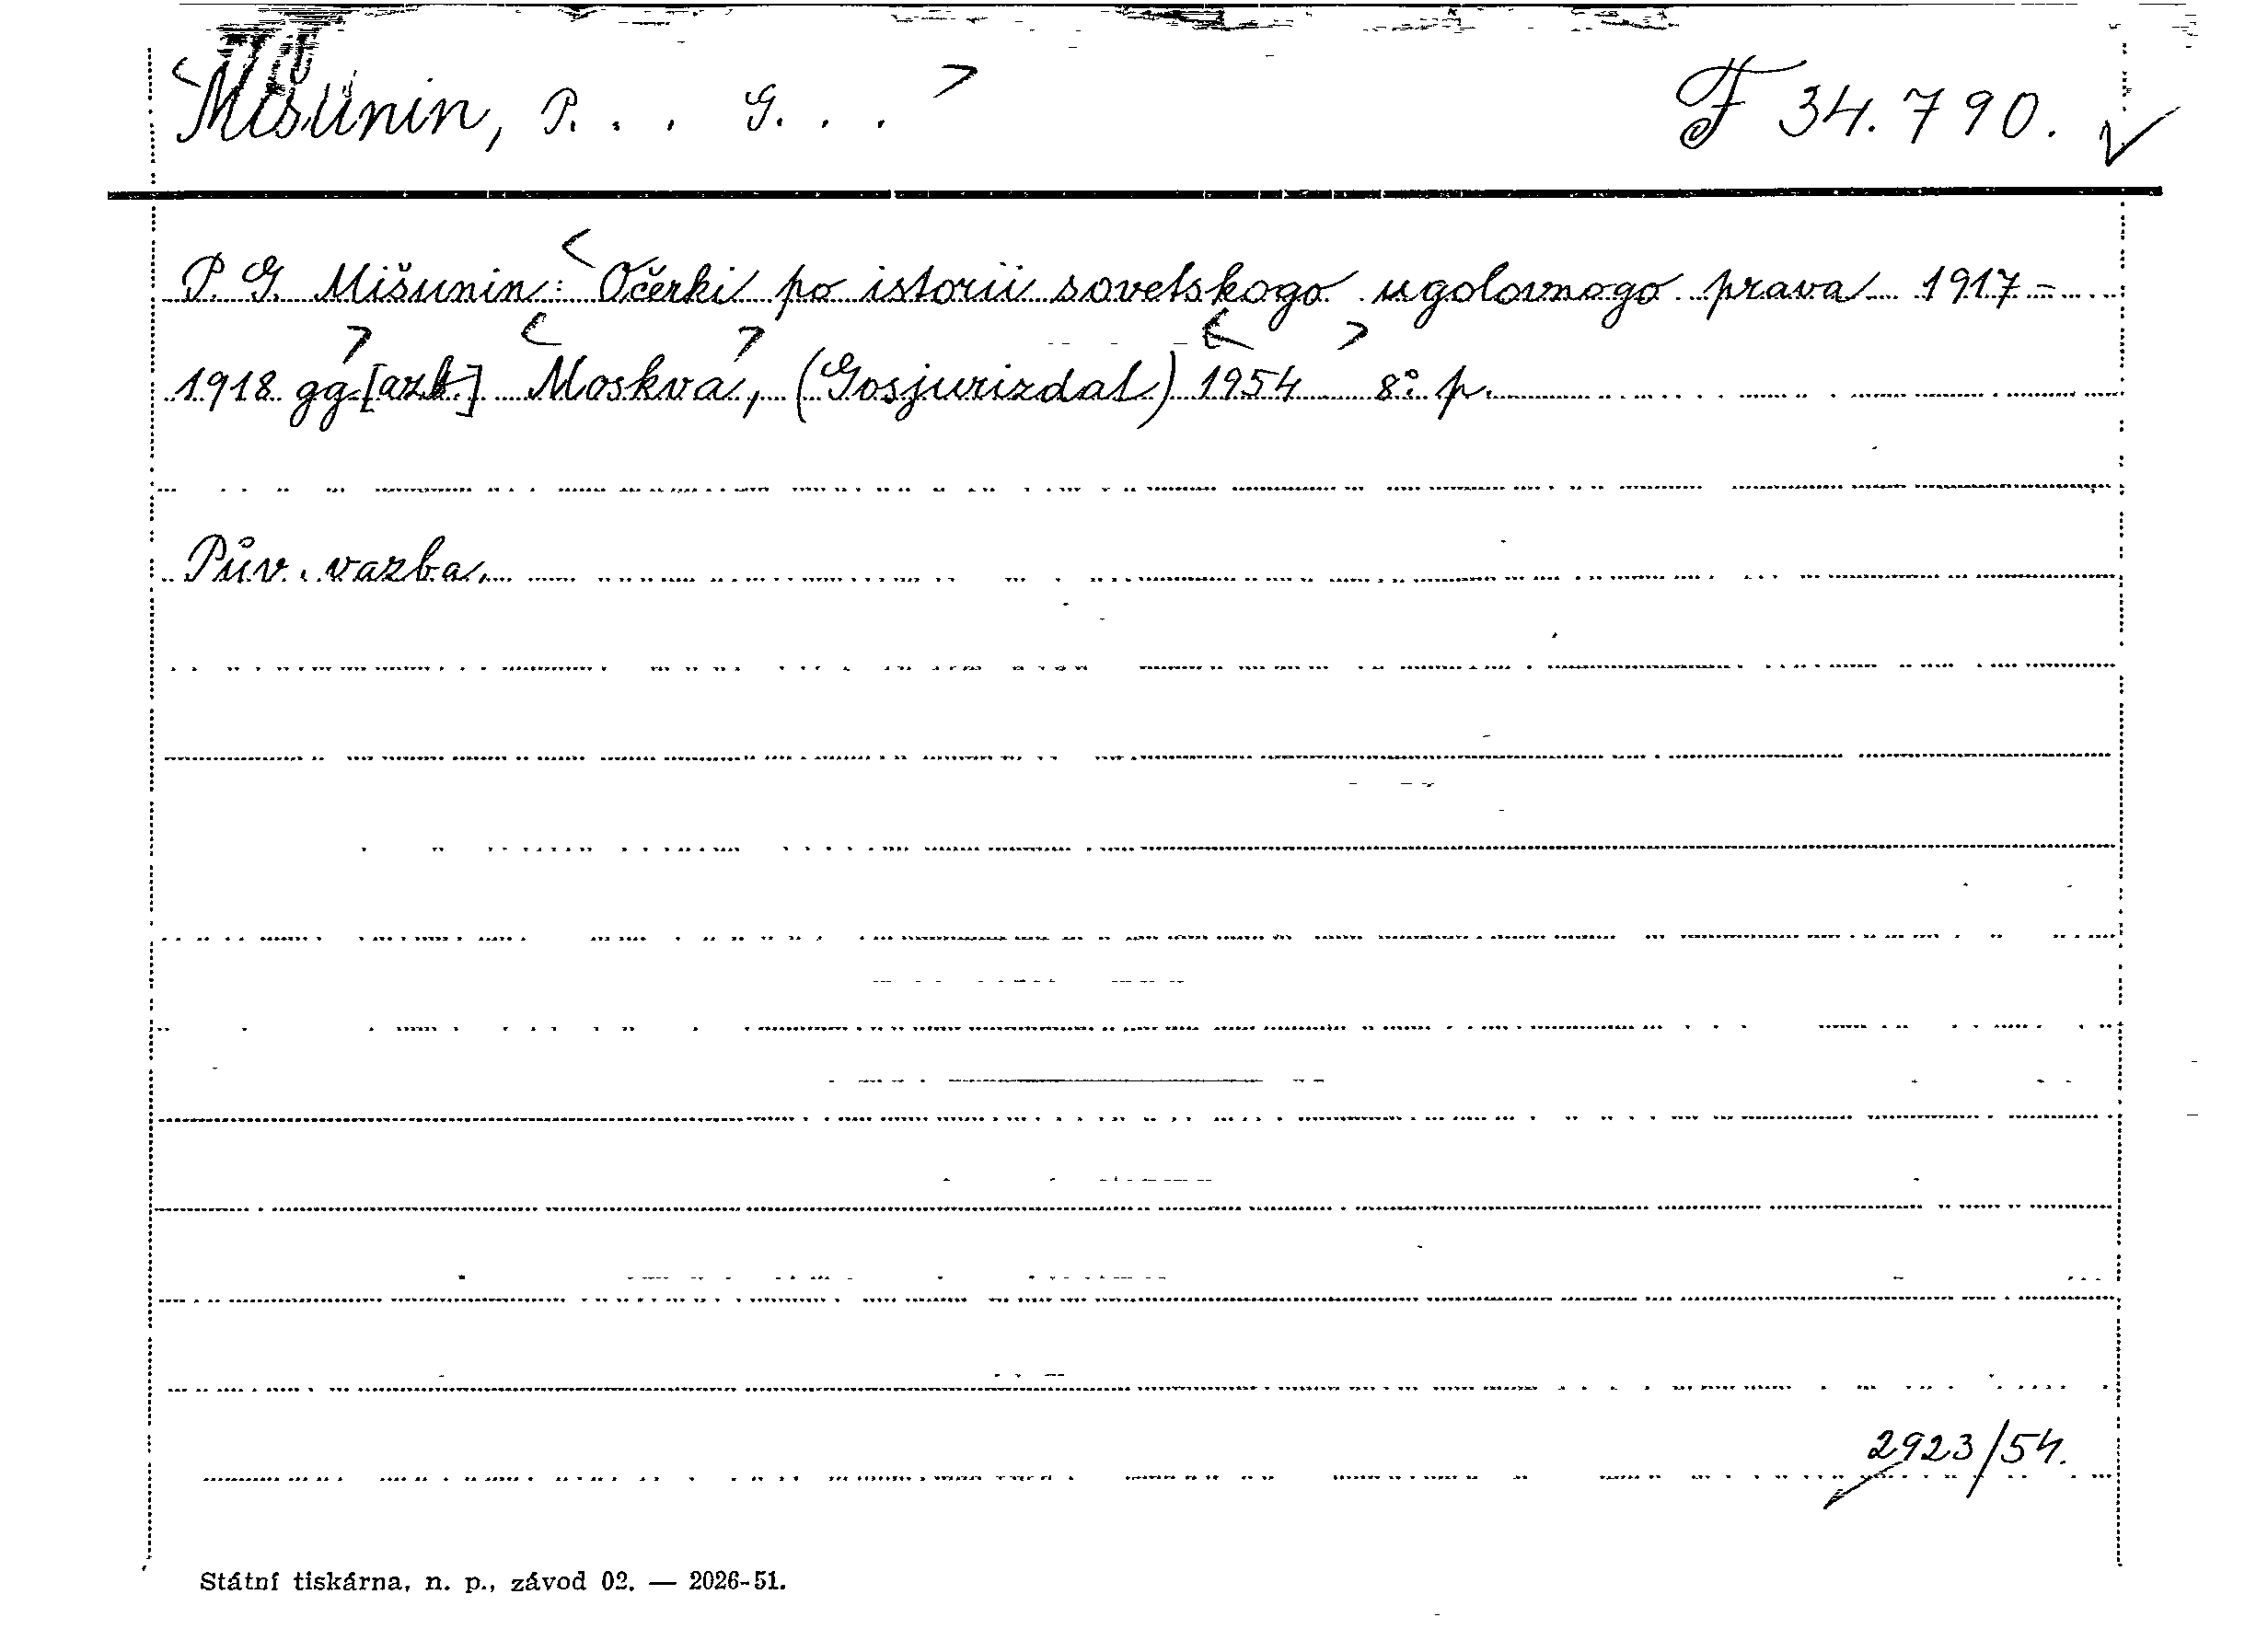 <Mišunin, P. . . G. . . > F 34.790. ✓
P. G. Mišunin: <Očerki po istorii sovetskogo ugolovnogo prava 1917-
1918 gg>[azb.] <Moskva>, (Gosjurizdat) <1954> 8° p.
Pův. vazba.
2923/54.
Státní tiskárna, n. p., závod 02. — 2026-51.